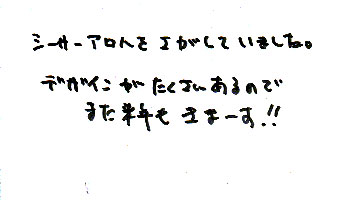 シーサーアロハをさがしていました。
デザインがたくさんあるので
また来年もきまーす!!